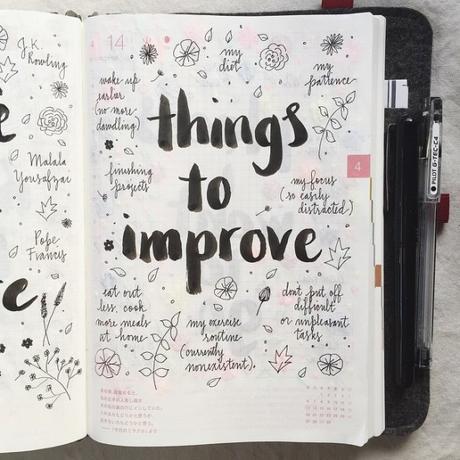 J.K.
Rowling
Malala
Yousafzai
Pope
Francis
14
my
diet
my
patience
wake up
earlier
(no more
dawdling)
things
to
improve
finishing
projects
4
my focus
(so easily
distracted)
eat out
less, cook
more meals
at home
my exercise
routine
(currently
nonexistent).
don't put off
difficult
or unpleasant
tasks
PILOT G-TEC-C4